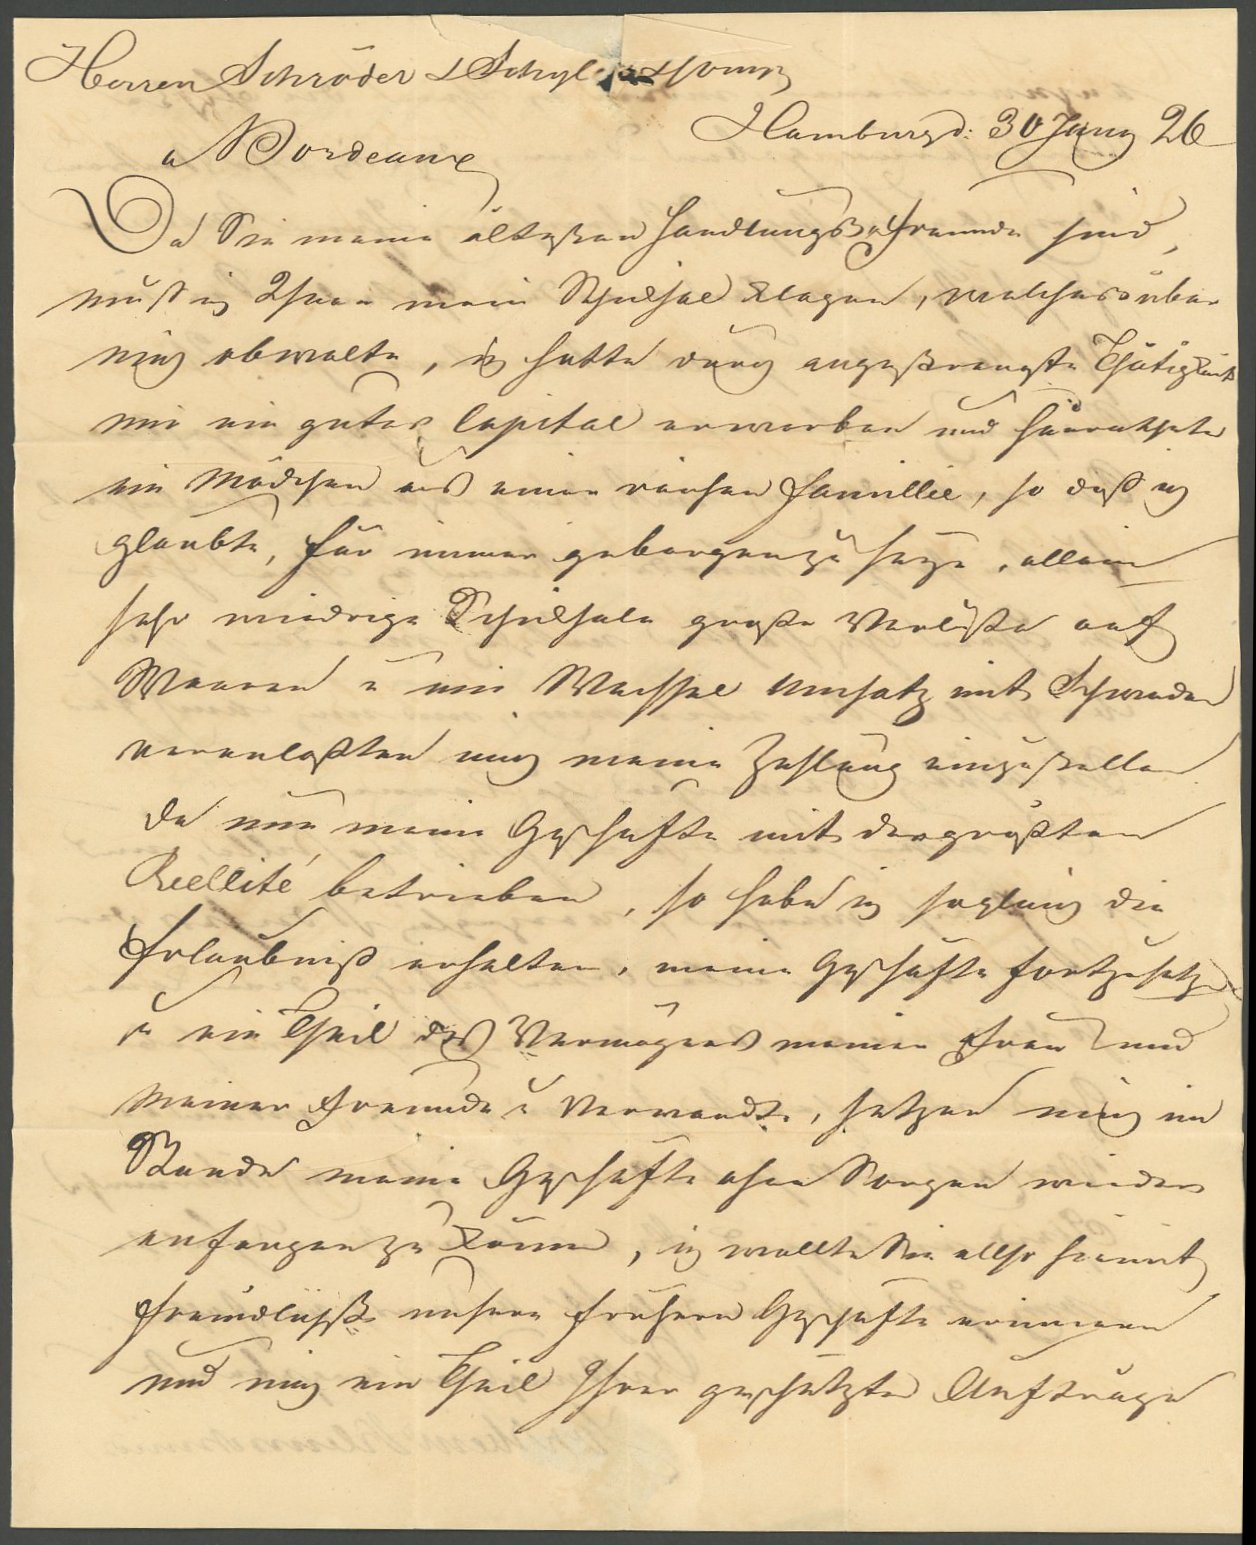 Herren Schröder & Schyler & Comp
Hamburg d: 30 Juny 26
a Bordeaux
Da Sie meine ältesten Handlungsfreunde sind,
muß ich Ihnen mein Schicksal klagen, welches über
mich obwalte, ich hatte durch angestrengte Thätigkeit
mir ein gutes Capital erworben und heirathete
ein Mädchen aus einer reichen Famillie, so daß ich
glaubte, für immer geborgen zu seyn, allein
sehr niedrige Schicksale große Verluste auf
Waaren u ein Wechsel Umsatz mit Schweden
veranlaßten mich meine Zahlung einzustellen
da nun meine Geschäfte mit der größten
Reellité betrieben, so habe ich sogleich die
Erlaubniß erhalten, meine Geschäfte fortzusetzen
u ein Theil des Vermögens meiner Frau und
meiner Freunde u Verwandte, setzen mich im
Stande meine Geschäfte ohne Sorgen wieder
anfangen zu können, ich wollte Sie allso hiemit
freundlichst unsere frühern Geschäfte erinnern
und mich ein Theil Ihrer geschätzten Aufträge